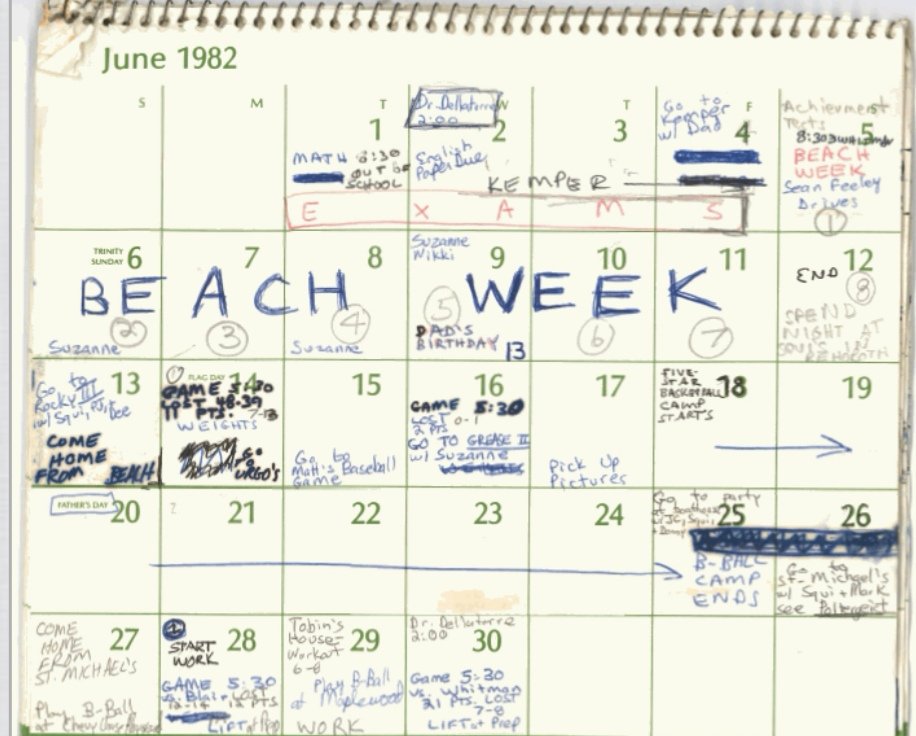 June 1982
S M T W T F S
1
MATH 8:30
OUT OF
SCHOOL
Dr. Dellatorre
2:00
2
English
Paper Due
3
KEMPER
Go to
Kemper
w/ Dad
4
E X A M S
Achievement
Tests
5
8:30
BEACH
WEEK
Sean Feeley
Drives
1
TRINITY
SUNDAY
6
7
8
Suzanne
Nikki
9
10
11
12
BEACH WEEK
2
Suzanne
3
4
Suzanne
5
DAD'S
BIRTHDAY
13
6
7
END
8
SPEND
NIGHT AT
SQUI'S IN
REHOBOTH
13
Go to
Rocky III
w/ Squi, PJ,
COME
HOME
FROM BEACH
FLAG DAY
14
GAME 5:30
LOST 48-39
11 PTS. 7-13
WEIGHTS
GO
URGO'S
15
Go to
Matt's Baseball
Game
16
GAME 5:30
LOST 0-1
2 PTS
GO TO GREASE II
w/ Suzanne
17
Pick Up
Pictures
18
FIVE-
STAR
BASKETBALL
CAMP
START'S
19
FATHER'S DAY
20
21
22
23
24
25
Go to party
at boathouse
w/ JC, Squi
+ Donny
B-BALL
CAMP
ENDS
26
Go to
St. Michael's
w/ Squi + Mark
see Poltergeist
27
COME
HOME
FROM
ST. MICHAEL'S
Play B-Ball
at Chevy Chase
28
START
WORK
GAME 5:30
vs. Blair LOST
12-14 12 PTS
LIFT at Prep
29
Tobin's
House-
Workout
6-8
Play B-Ball
at Maplewood
WORK
30
Dr. Dellatorre
2:00
Game 5:30
vs. Whitman
21 PTS. LOST
7-8
LIFT at Prep